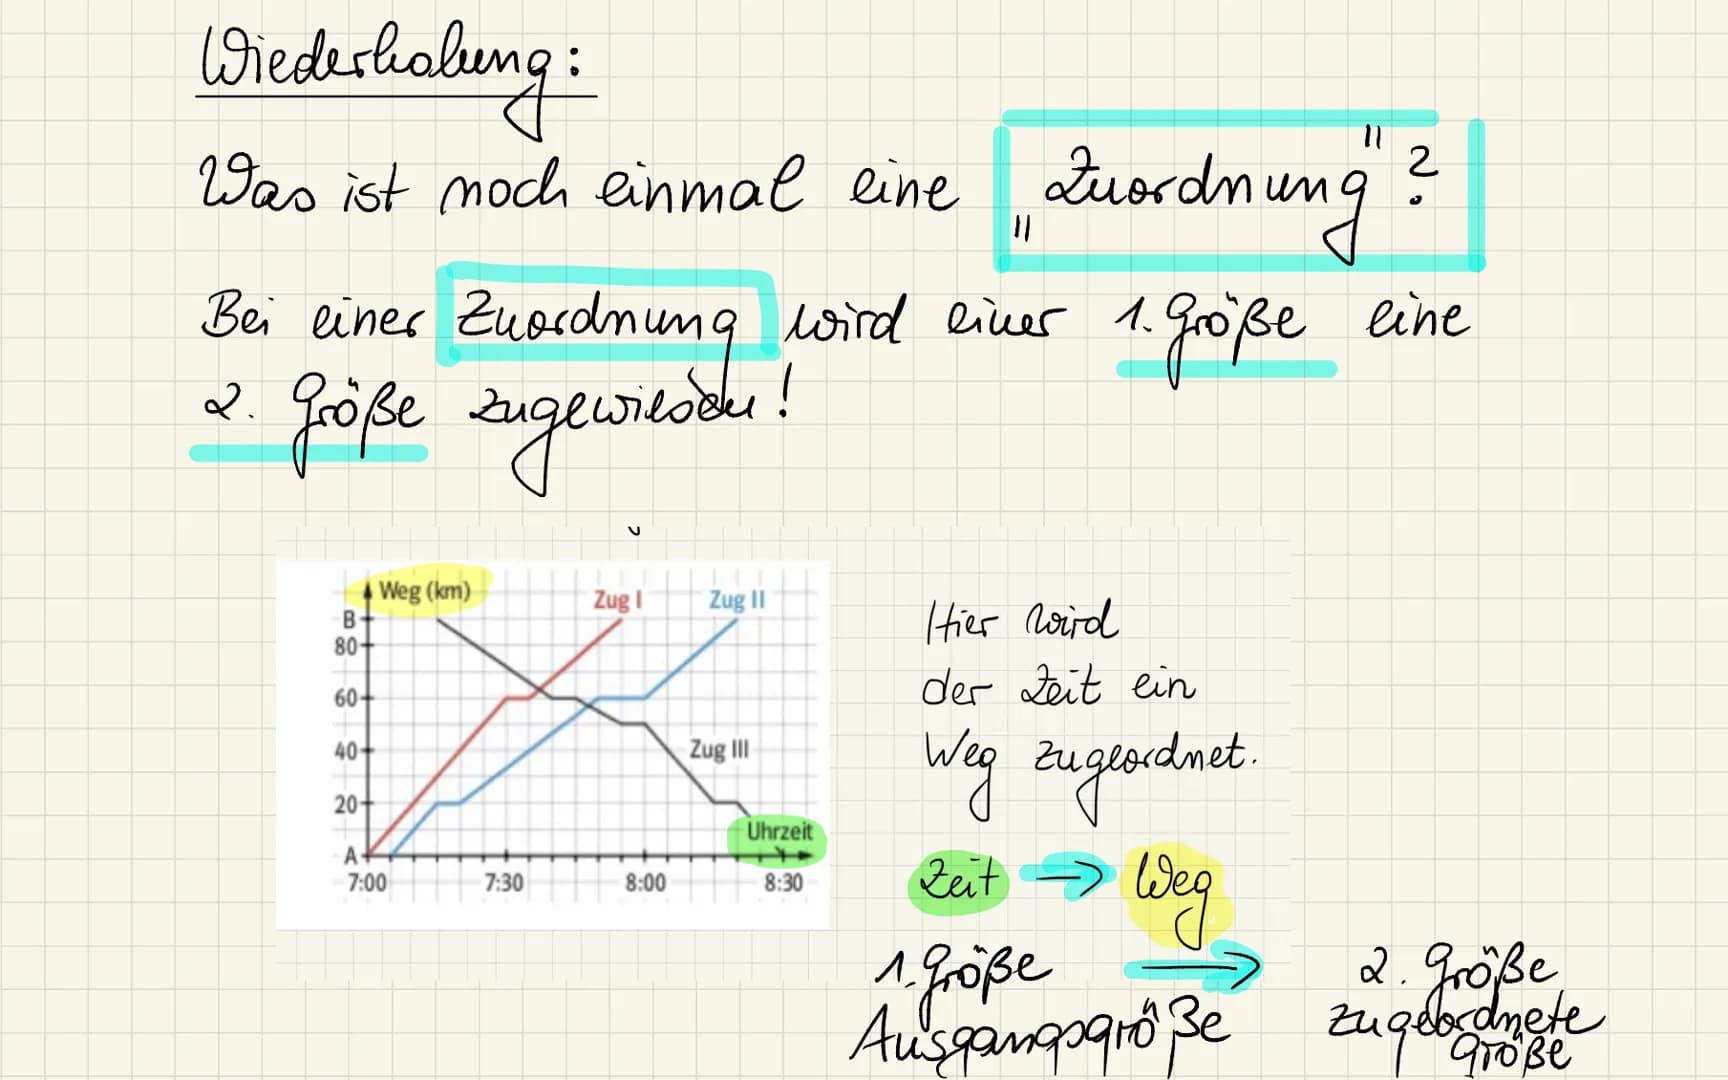 Wiederholung:
Was ist noch einmal eine „Zuordnung"?
Bei einer Zuordnung wird einer 1. Größe eine
2. Größe zugewiesen!
Weg (km)
Zug I
Zug II
B
80
60
40
20
A
Zug III
Uhrzeit
7:00
7:30
8:00
8:30
Hier wird
der Zeit ein
Weg zugeordnet.
Zeit → Weg
1. Größe → 2. Größe
Ausgangsgröße zugeordnete
Größe